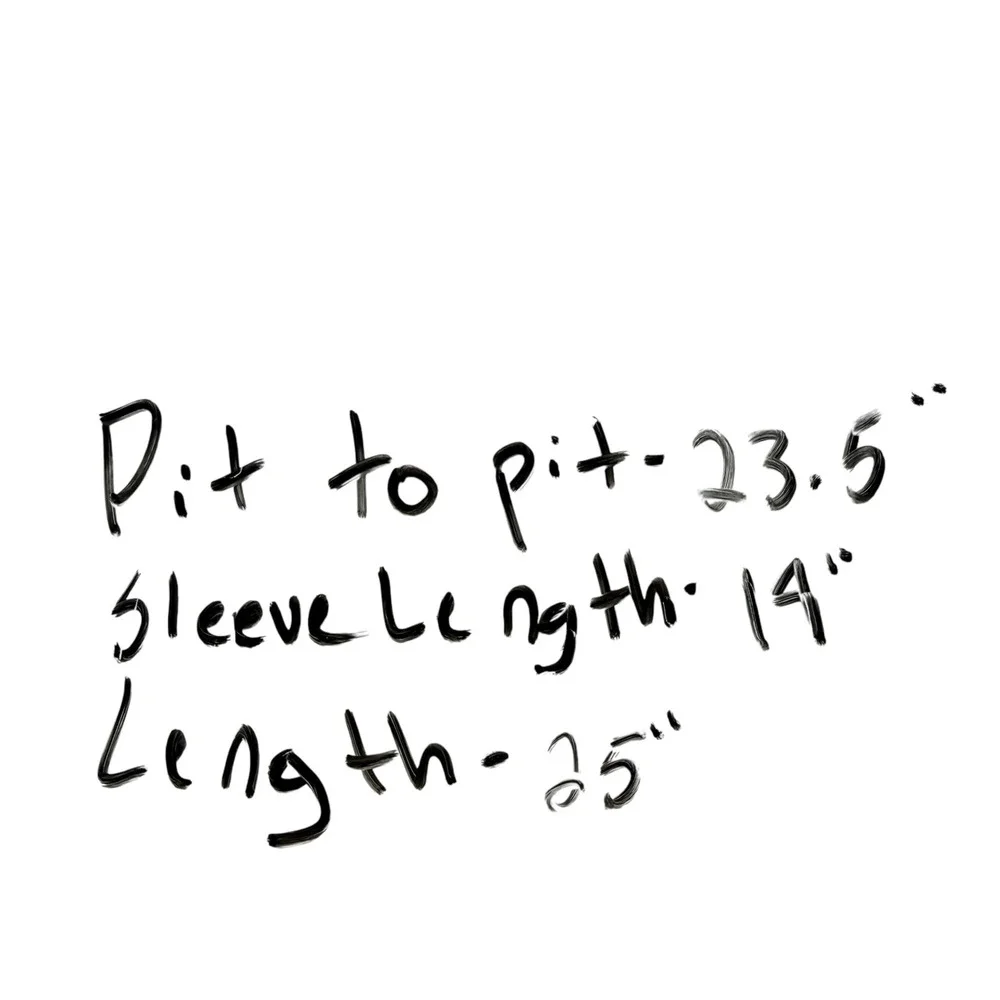 Pit to pit- 23.5"
Sleeve Length- 19"
Length- 25"